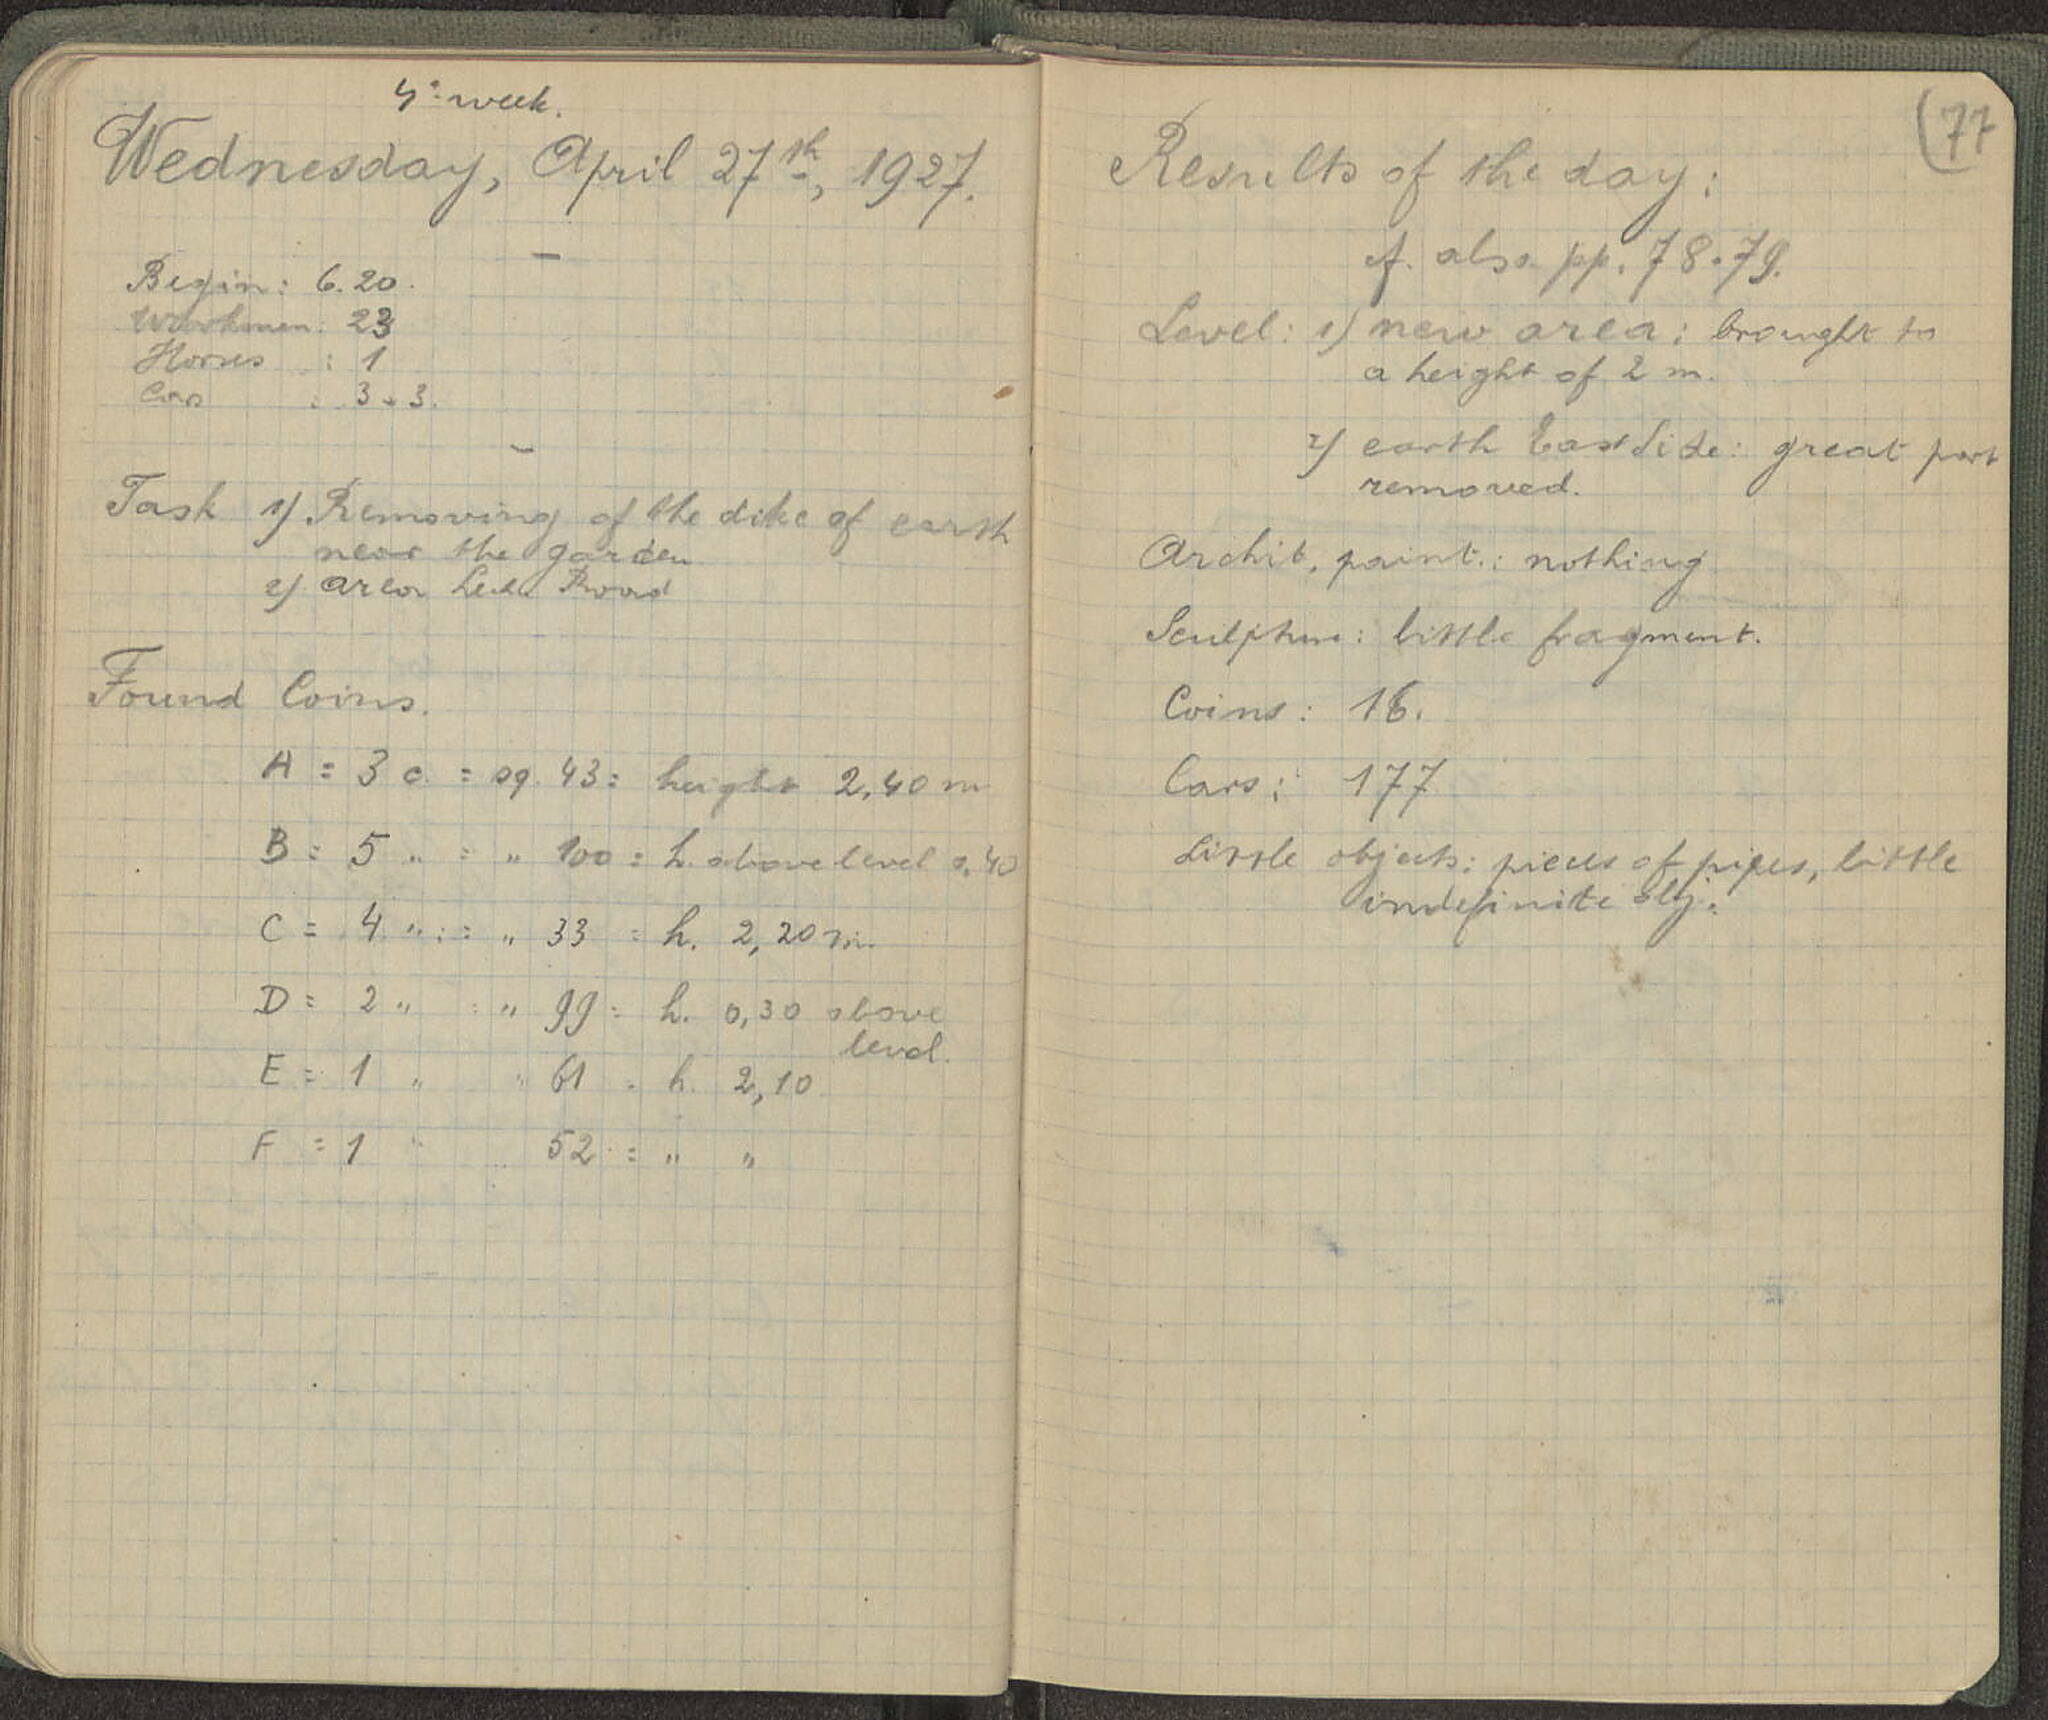 4: week.
Wednesday, April 27th, 1927.
Begin: 6.20.
Workmen: 23
Horses : 1
Cars : 3 + 3.
Task 1) Removing of the dike of earth
near the garden
2) area Road
Found Coins.
A = 3 c. = sq. 43 = height 2,40 m
B = 5 " = " 100 = h. above level 0,40
C = 4 " : = " 33 = h. 2,20 m.
D = 2 " = " 99 = h. 0,30 above
level.
E = 1 " " 61 = h. 2,10
F = 1 " 52 = " "
(77
Results of the day:
cf. also pp. 78-79.
Level: 1) new area: brought to
a height of 2 m.
2) earth East Side: great part
removed.
Archit, paint.: nothing
Sculpture: little fragment.
Coins: 16.
Cars: 177
Little objects: pieces of pipes, little
indefinite obj.